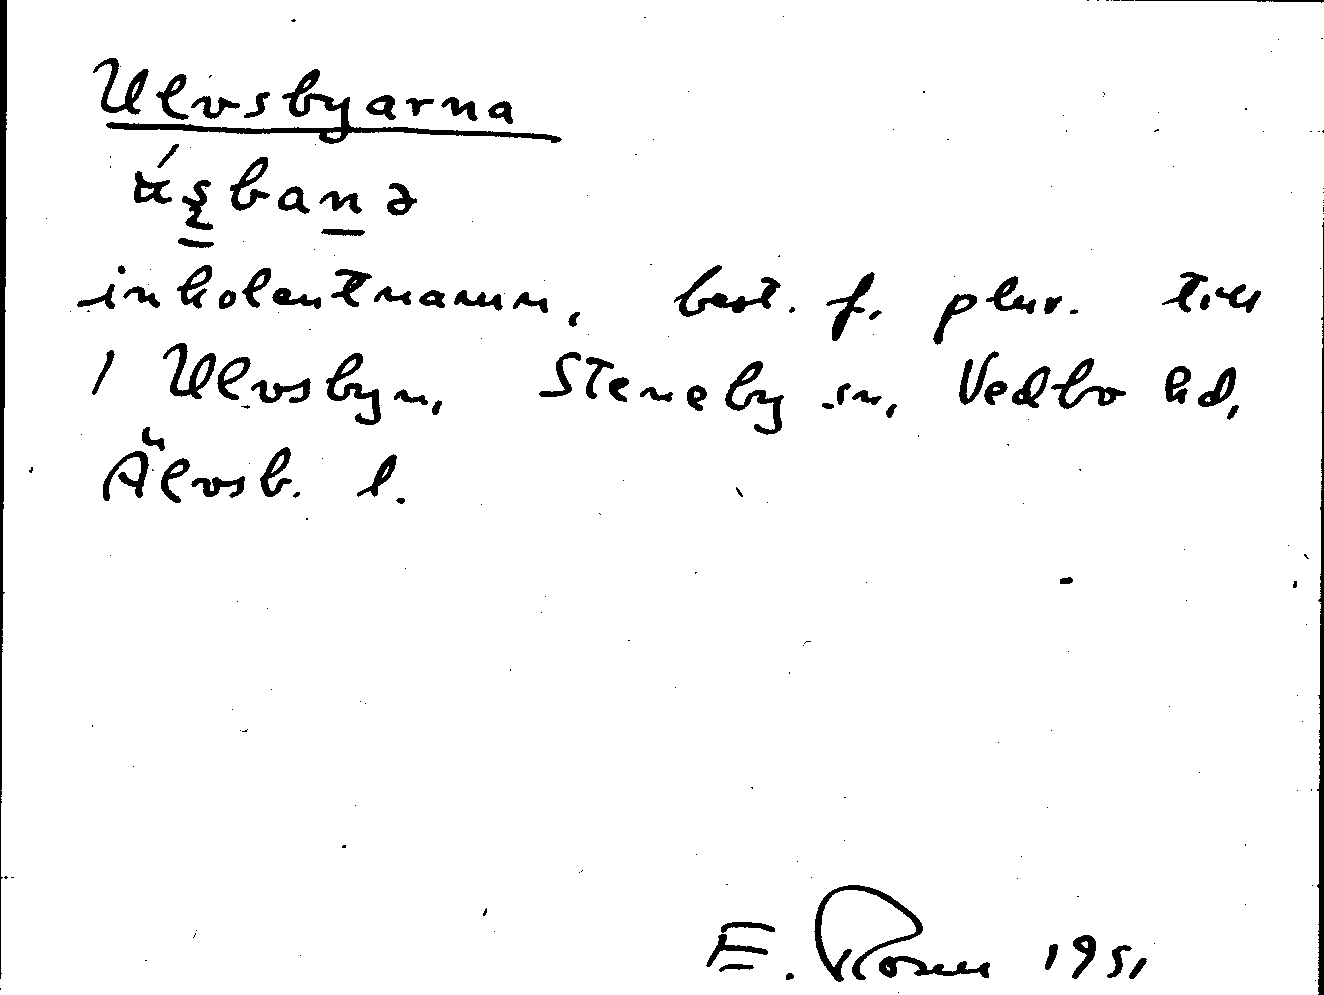 Ulvsbyarna
inkolentnamn, best. f. plur. till
1 Ulvsbyn, Steneby sn, Vedbo hd,
Älvsb. l.
E. Rosell 1951